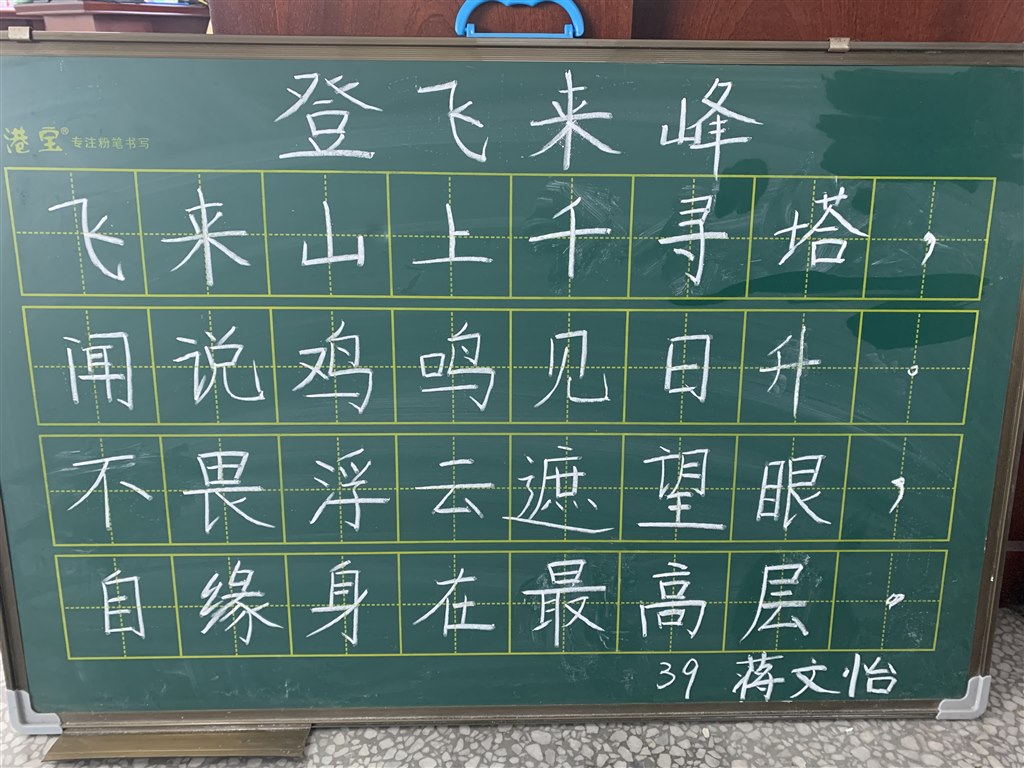 登飞来峰
港宝® 专注粉笔书写
飞来山上千寻塔，
闻说鸡鸣见日升。
不畏浮云遮望眼，
自缘身在最高层。
39 蒋文怡